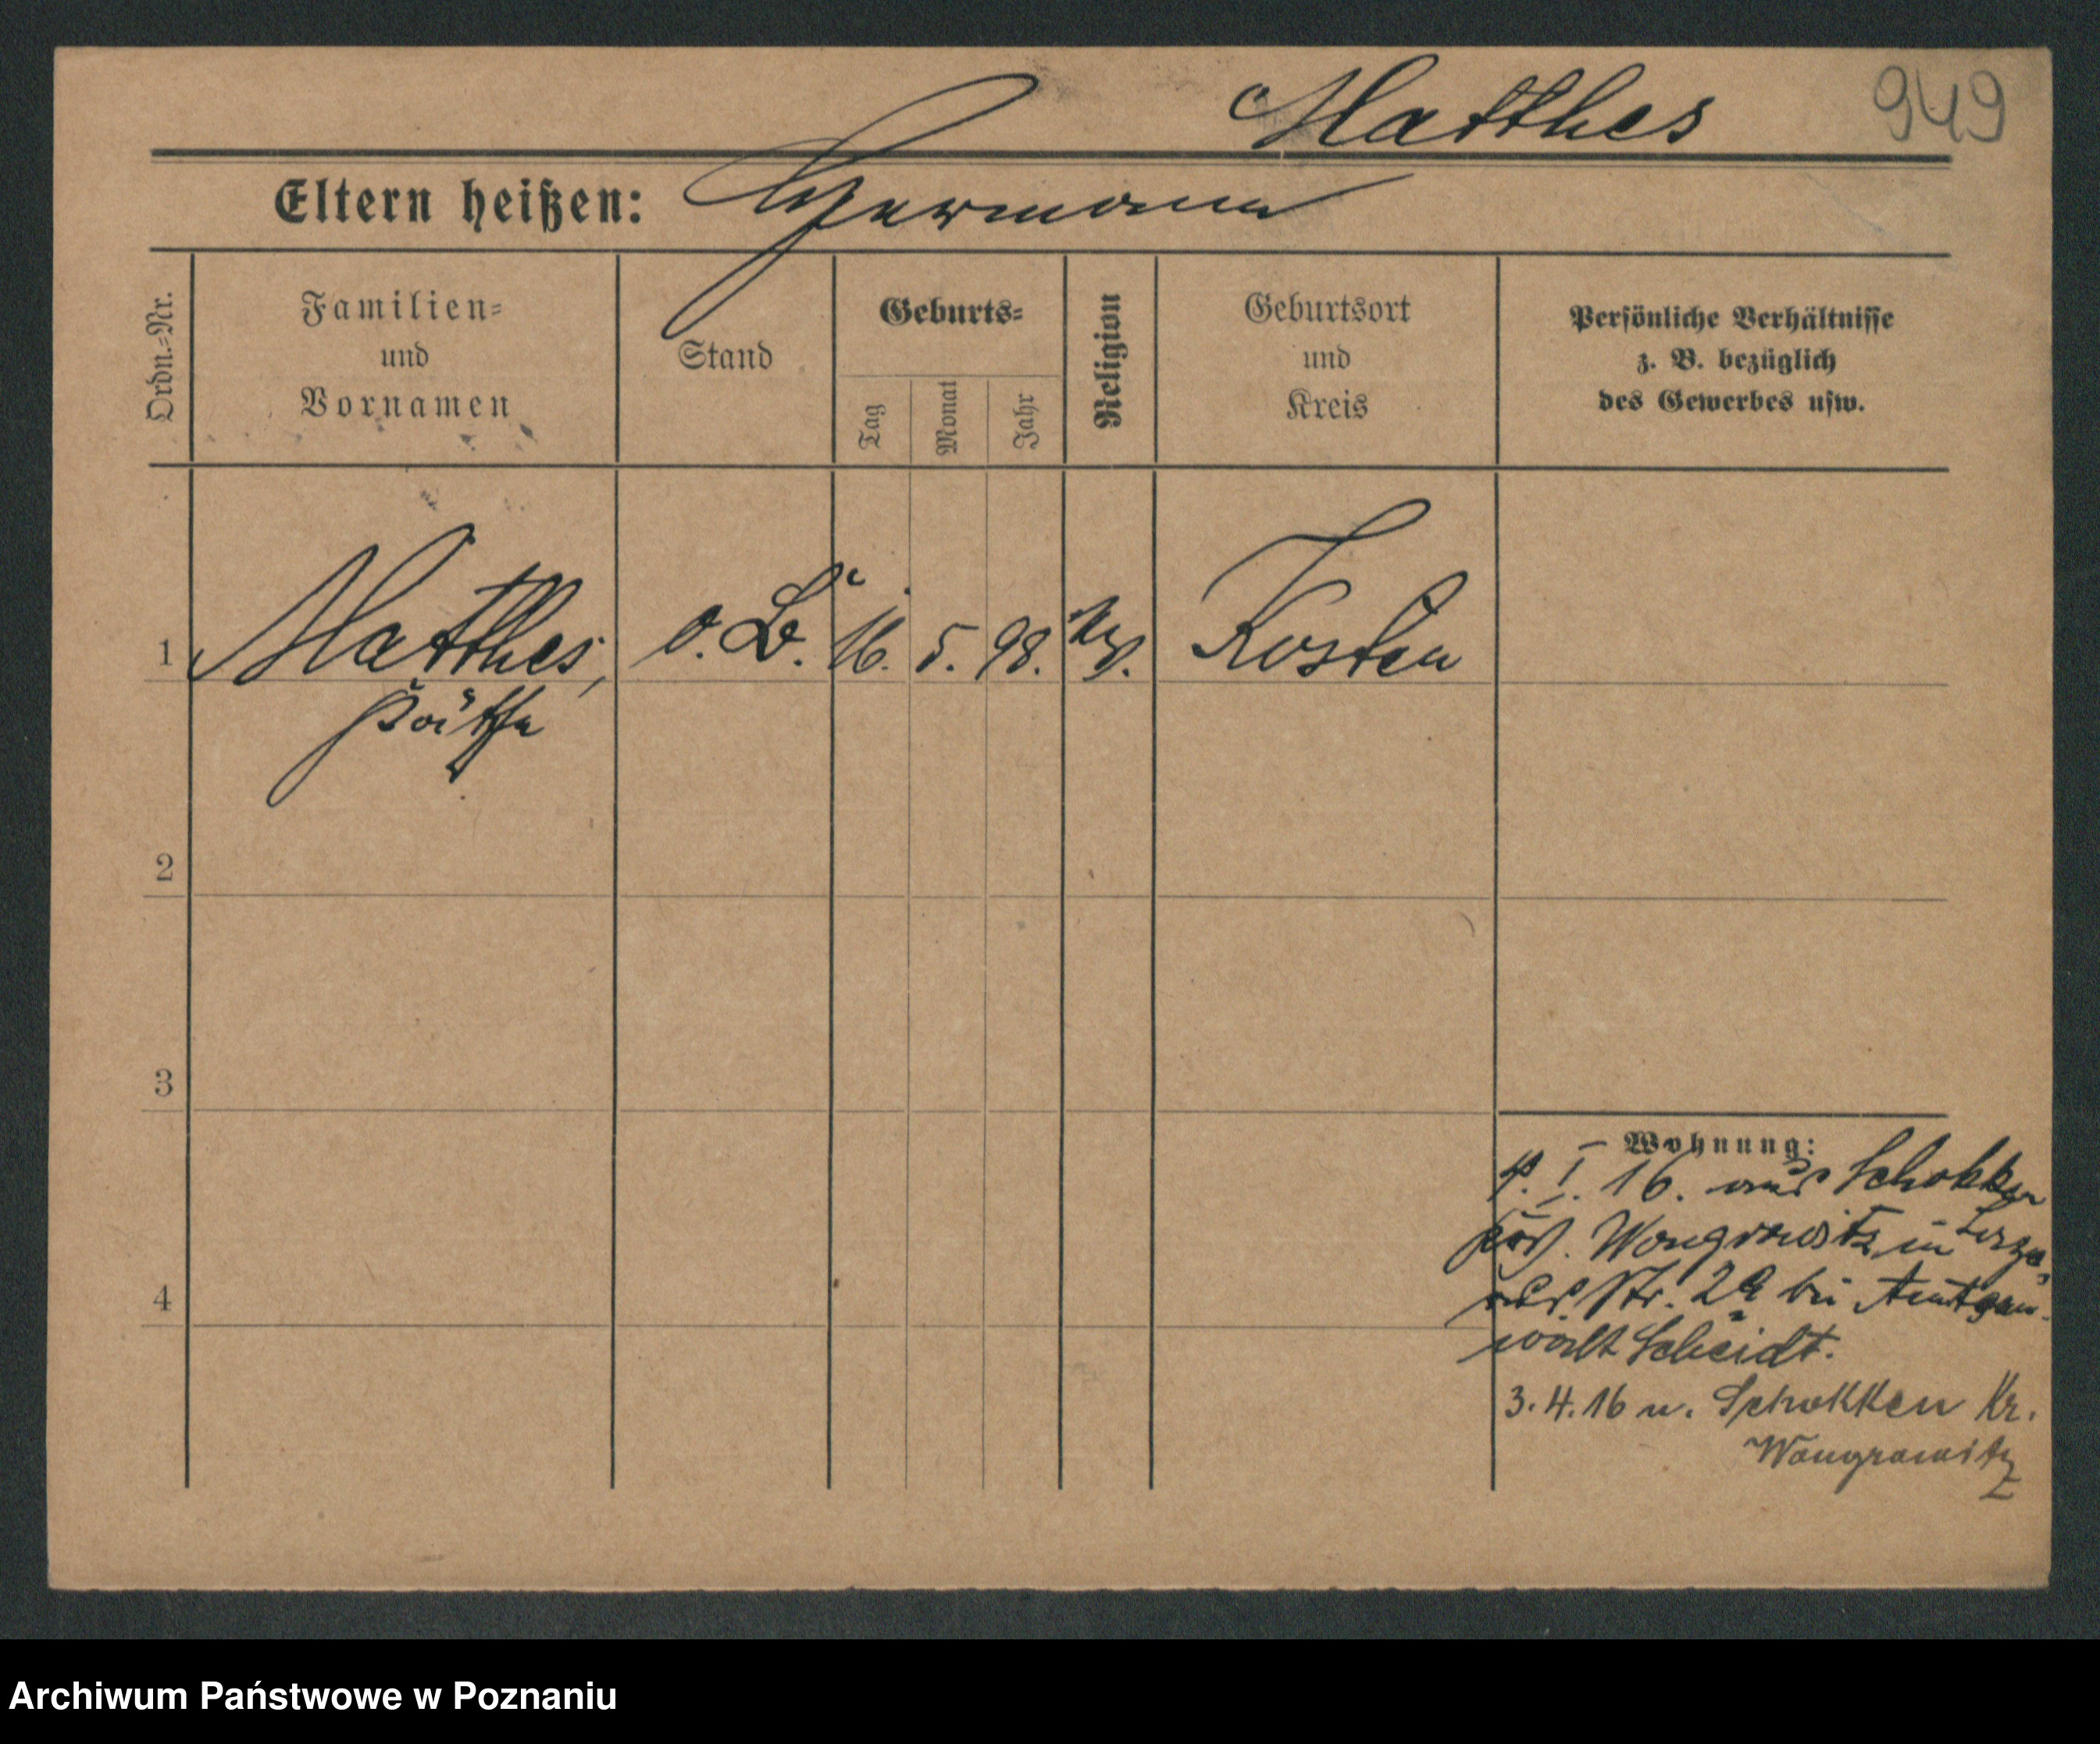 Matthes 949
Eltern heißen: Hermann
Ordn.-Nr.
Familien-
und
Vornamen
Stand
Geburts-
Tag
Monat
Jahr
Religion
Geburtsort
und
Kreis
Persönliche Verhältnisse
z. B. bezüglich
des Gewerbes usw.
1 Matthes, o. B. 16. 5. 98. Kosten
Käthe
2
3
4
Wohnung:
I. 16. aus Schokken
Wongrowitz in
Str. bei Amtsan-
walt Scheidt.
3. 4. 16 n. Schokken Kr.
Wongrowitz
Archiwum Państwowe w Poznaniu